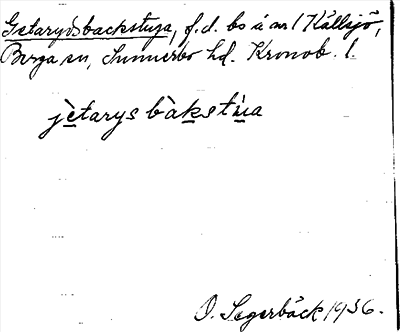 Getarydsbackstuga, f.d. bs å nr 1 Källsjö,
Berga sn, Sunnerbo hd. Kronob. l.
jètarys bàkstùa
O. Segerbäck 1936.